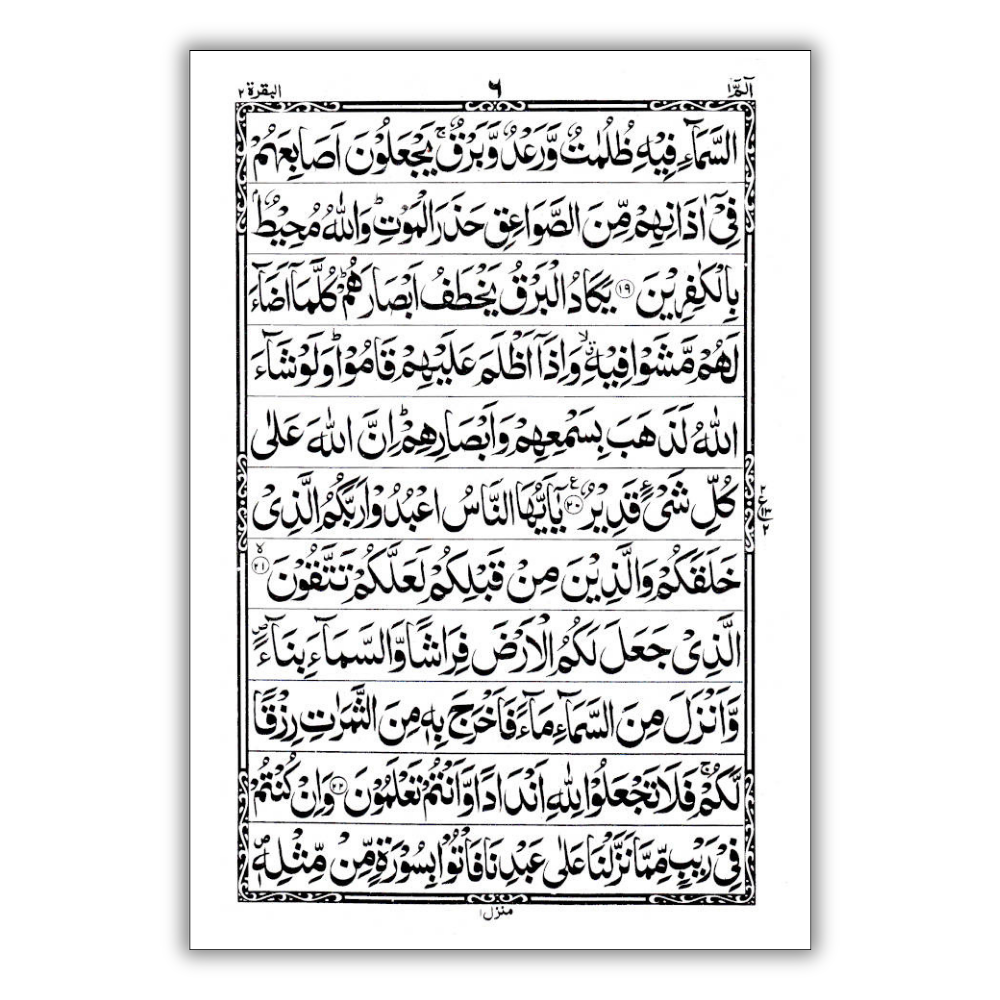 الٓمّٓ ۱ ٦ البقرة ۲
السَّمَآءِ فِیْهِ ظُلُمٰتٌ وَّرَعْدٌ وَّبَرْقٌ ۚ یَجْعَلُوْنَ اَصَابِعَهُمْ
فِیْۤ اٰذَانِهِمْ مِّنَ الصَّوَاعِقِ حَذَرَ الْمَوْتِ ؕ وَاللّٰهُ مُحِیْطٌۢ
بِالْكٰفِرِیْنَ ۝۱۹ یَكَادُ الْبَرْقُ یَخْطَفُ اَبْصَارَهُمْ ؕ كُلَّمَاۤ اَضَآءَ
لَهُمْ مَّشَوْا فِیْهِ ۙۗ وَاِذَاۤ اَظْلَمَ عَلَیْهِمْ قَامُوْا ؕ وَلَوْ شَآءَ
اللّٰهُ لَذَهَبَ بِسَمْعِهِمْ وَاَبْصَارِهِمْ ؕ اِنَّ اللّٰهَ عَلٰی
كُلِّ شَیْءٍ قَدِیْرٌ ۝۲۰ ع یٰۤاَیُّهَا النَّاسُ اعْبُدُوْا رَبَّكُمُ الَّذِیْ
۲ ع ۱۳ ۲
خَلَقَكُمْ وَالَّذِیْنَ مِنْ قَبْلِكُمْ لَعَلَّكُمْ تَتَّقُوْنَ ۝۲۱ ۙ
الَّذِیْ جَعَلَ لَكُمُ الْاَرْضَ فِرَاشًا وَّالسَّمَآءَ بِنَآءً ۪
وَّاَنْزَلَ مِنَ السَّمَآءِ مَآءً فَاَخْرَجَ بِهٖ مِنَ الثَّمَرٰتِ رِزْقًا
لَّكُمْ ۚ فَلَا تَجْعَلُوْا لِلّٰهِ اَنْدَادًا وَّاَنْتُمْ تَعْلَمُوْنَ ۝۲۲ وَاِنْ كُنْتُمْ
فِیْ رَیْبٍ مِّمَّا نَزَّلْنَا عَلٰی عَبْدِنَا فَاْتُوْا بِسُوْرَةٍ مِّنْ مِّثْلِهٖ ۪
منزل ۱